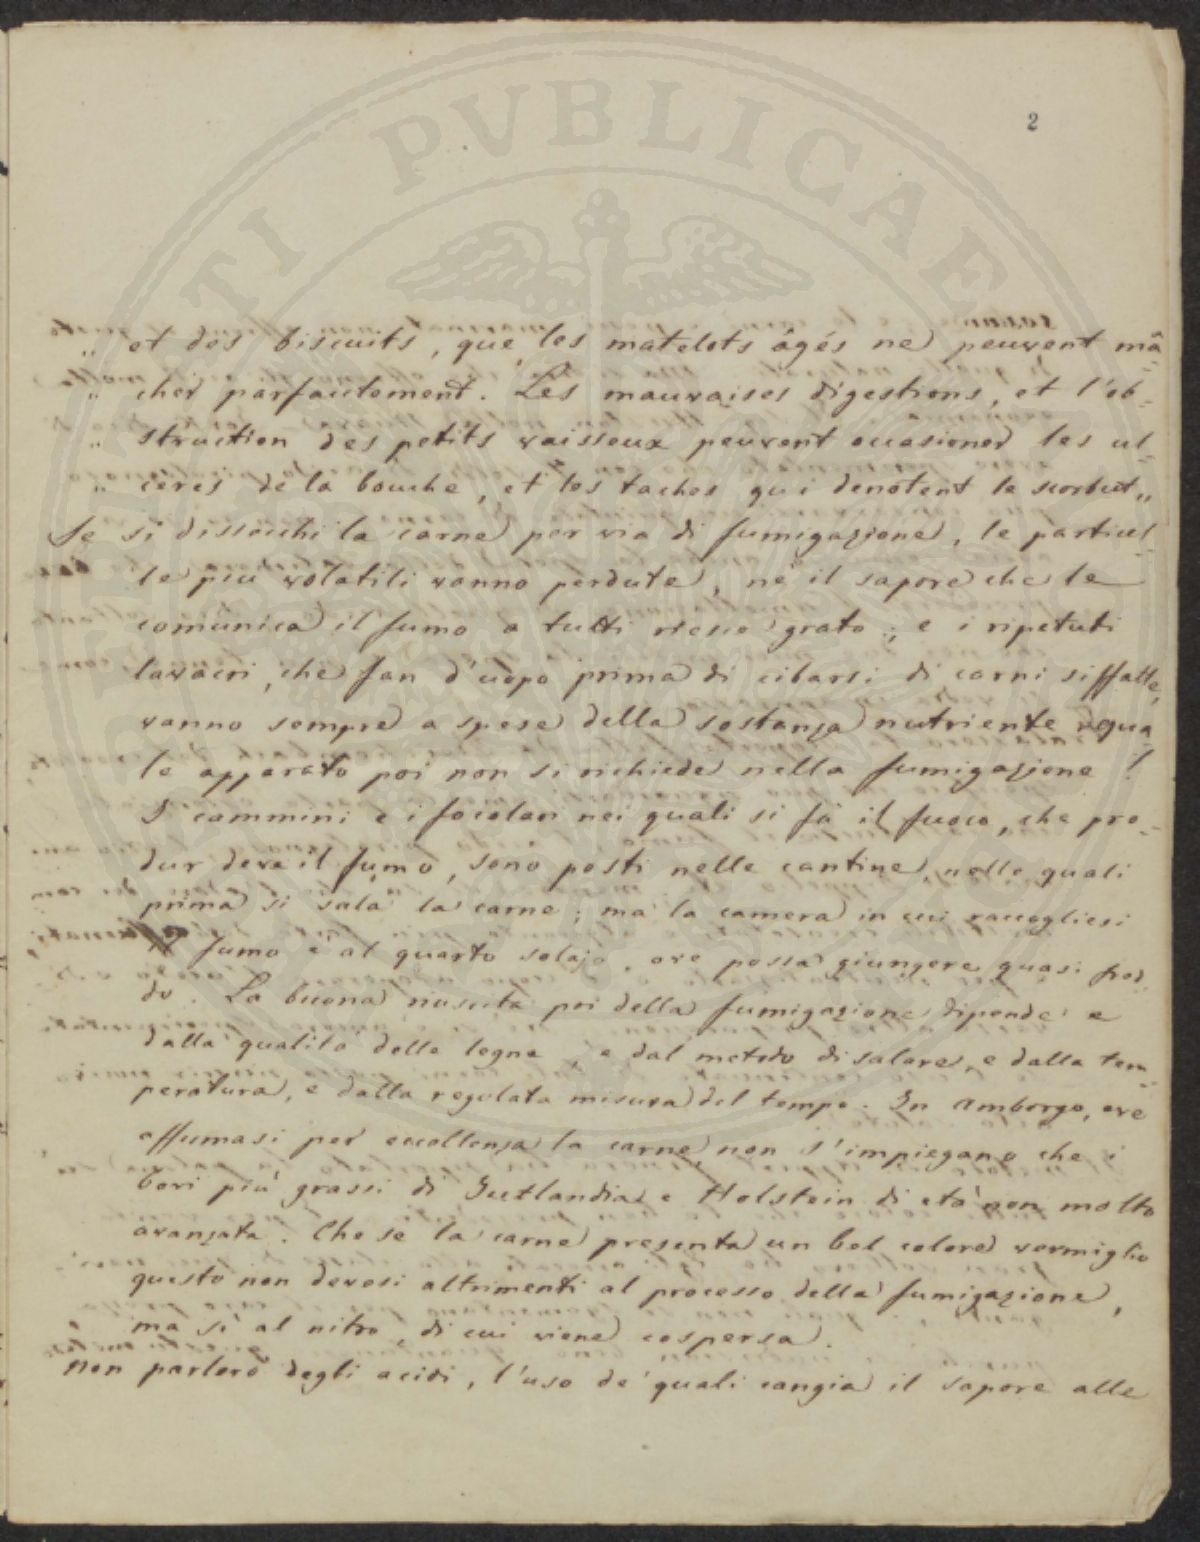 2
„ et des biscuits, que les matelots âgés ne peuvent mâ=
„ cher parfaitement. Les mauvaises digestions, et l'ob=
„ struction des petits vaisseux peuvent occasioner les ul=
„ ceres de la bouche, et les taches qui denotent le scorbut„
Se si dissecchi la carne per via di fumigazione, le particel=
le più volatili vanno perdute, nè il sapore che le
comunica il fumo a tutti riesce grato; e i ripetuti
lavacri, che fan d'uopo prima di cibarsi di carni siffatte,
vanno sempre a spese della sostanza nutriente. qua=
le apparato poi non si richiede nella fumigazione!
I cammini e i focolari nei quali si fà il fuoco, che pro=
dur deve il fumo, sono posti nelle cantine, nelle quali
prima si sala la carne; ma la camera in cui raccogliesi
il fumo è al quarto solajo, ove possa giungere quasi fred=
do. La buona riuscita poi della fumigazione dipende e
dalla qualità delle legne, e dal metodo di salare, e dalla tem=
peratura, e dalla regolata misura del tempo. In Amborgo, ove
affumasi per eccellenza la carne, non s'impiegano che i
bovi più grassi di Jutlandia e Holstein di età non molto
avanzata. Che se la carne presenta un bel colore vermiglio
questo non devesi altrimenti al processo della fumigazione,
ma sì al nitro, di cui viene cospersa.
Non parlerò degli acidi, l'uso de' quali cangia il sapore alle
PVBLICAE